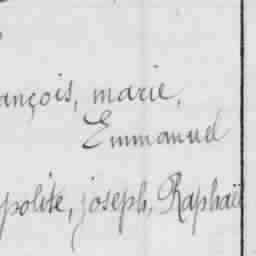 ançois, marie,
Emmanuel
polite, joseph, Raphaë